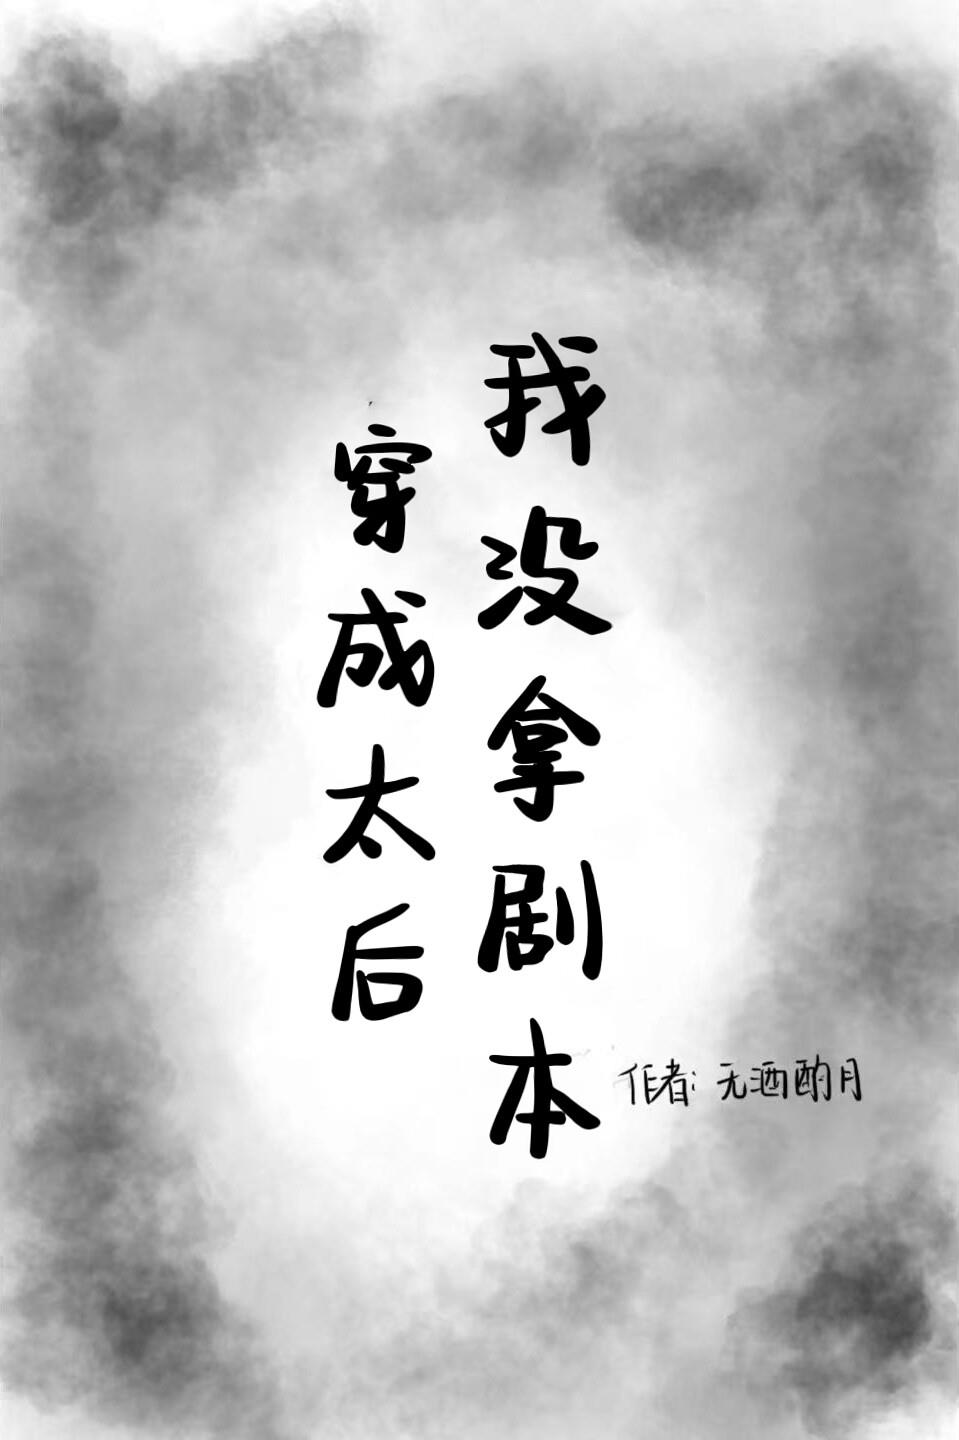 我没拿剧本
穿成太后
作者：无酒酌月